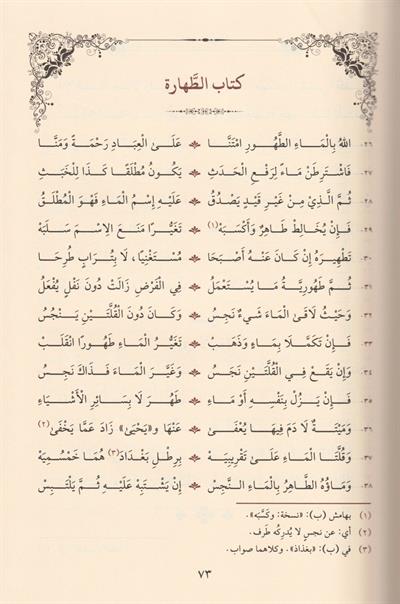 كتاب الطَّهارة
٢٦. اللهُ بِالْمَاءِ الطَّهُورِ امْتَنَّا عَلَى الْعِبَادِ رَحْمَةً وَمَنَّا
٢٧. فَاشْتَرِطَنْ مَاءً لِرَفْعِ الْحَدَثِ يَكُونُ مُطْلَقًا كَذَا لِلْخَبَثِ
٢٨. ثُمَّ الَّذِي مِنْ غَيْرِ قَيْدٍ يَصْدُقُ عَلَيْهِ إِسْمُ الْمَاءِ فَهْوَ الْمُطْلَقُ
٢٩. فَإِنْ يُخَالِطْ طَاهِرٌ وَأَكْسَبَهْ(١) تَغَيُّرًا مَنَعَ الاِسْمَ سَلَبَهْ
٣٠. تَطْهِيرَهُ إِنْ كَانَ عَنْهُ أَصْبَحَا مُسْتَغْنِيًا، لَا بِتُرَابٍ طُرِحَا
٣١. ثُمَّ طَهُورِيَّةُ مَا يُسْتَعْمَلُ فِي الْفَرْضِ زَالَتْ دُونَ نَفْلٍ يُفْعَلُ
٣٢. وَحَيْثُ لَاقَى الْمَاءَ شَيْءٌ نَجِسُ وَكَانَ دُونَ الْقُلَّتَيْنِ يَنْجُسُ
٣٣. فَإِنْ تَكَمَّلَا بِمَاءٍ وَذَهَبْ تَغَيُّرُ الْمَاءِ طَهُورًا انْقَلَبْ
٣٤. وَإِنْ يَقَعْ فِي الْقُلَّتَيْنِ نَجَسُ وَغَيَّرَ الْمَاءَ فَذَاكَ نَجِسُ
٣٥. فَإِنْ يَزُلْ بِنَفْسِهِ أَوْ مَاءِ طَهُرَ لَا بِسَائِرِ الْأَشْيَاءِ
٣٦. وَمَيْتَةٌ لَا دَمَ فِيهَا يُعْفَى عَنْهَا وَ«يَحْيَى» زَادَ عَمَّا يَخْفَى(٢)
٣٧. وَقُلَّتَا الْمَاءِ عَلَى تَقْرِيبِيَهْ بِرِطْلِ بَغْدَادَ(٣) هُمَا خَمْسُمِيَهْ
٣٨. وَمَاؤُهُ الطَّاهِرُ بِالْمَاءِ النَّجِسْ إِنْ يَشْتَبِهْ عَلَيْهِ ثُمَّ يَلْتَبِسْ
(١) بهامش (ب): «نسخة: وكسَّبَه».
(٢) أي: عن نجسٍ لا يُدركه طَرف.
(٣) في (ب): «بغداذ». وكلاهما صواب.
٧٣